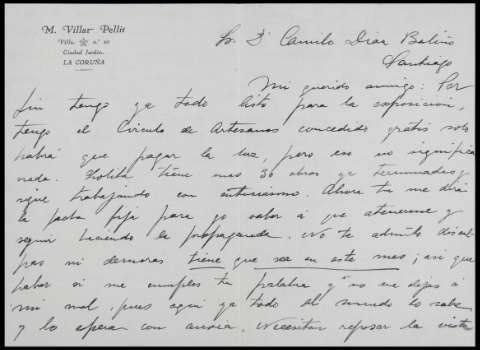 M. Villar Pellit
Villa nº 10
Ciudad Jardín.
LA CORUÑA
Sr. Dn Camilo Diaz Baliño
Santiago
Mi querido amigo: Por
fin tengo ya todo listo para la exposición,
tengo el Circulo de Artesanos concedido gratis solo
habrá que pagar la luz, pero eso no significa
nada. Lolita tiene unas 36 obras ya terminadas y
sigue trabajando con entusiasmo. Ahora tu me dirás
la fecha fija para yo saber á que atenerme y
seguir haciendo la propaganda. No te admito discul
pas ni demoras tiene que ser en este mes; así que
haber si me cumples tu palabra y no me dejas á
mi mal, pues aqui ya todo el mundo lo sabe
y lo espera con ansia. Necesitan reposar la vista